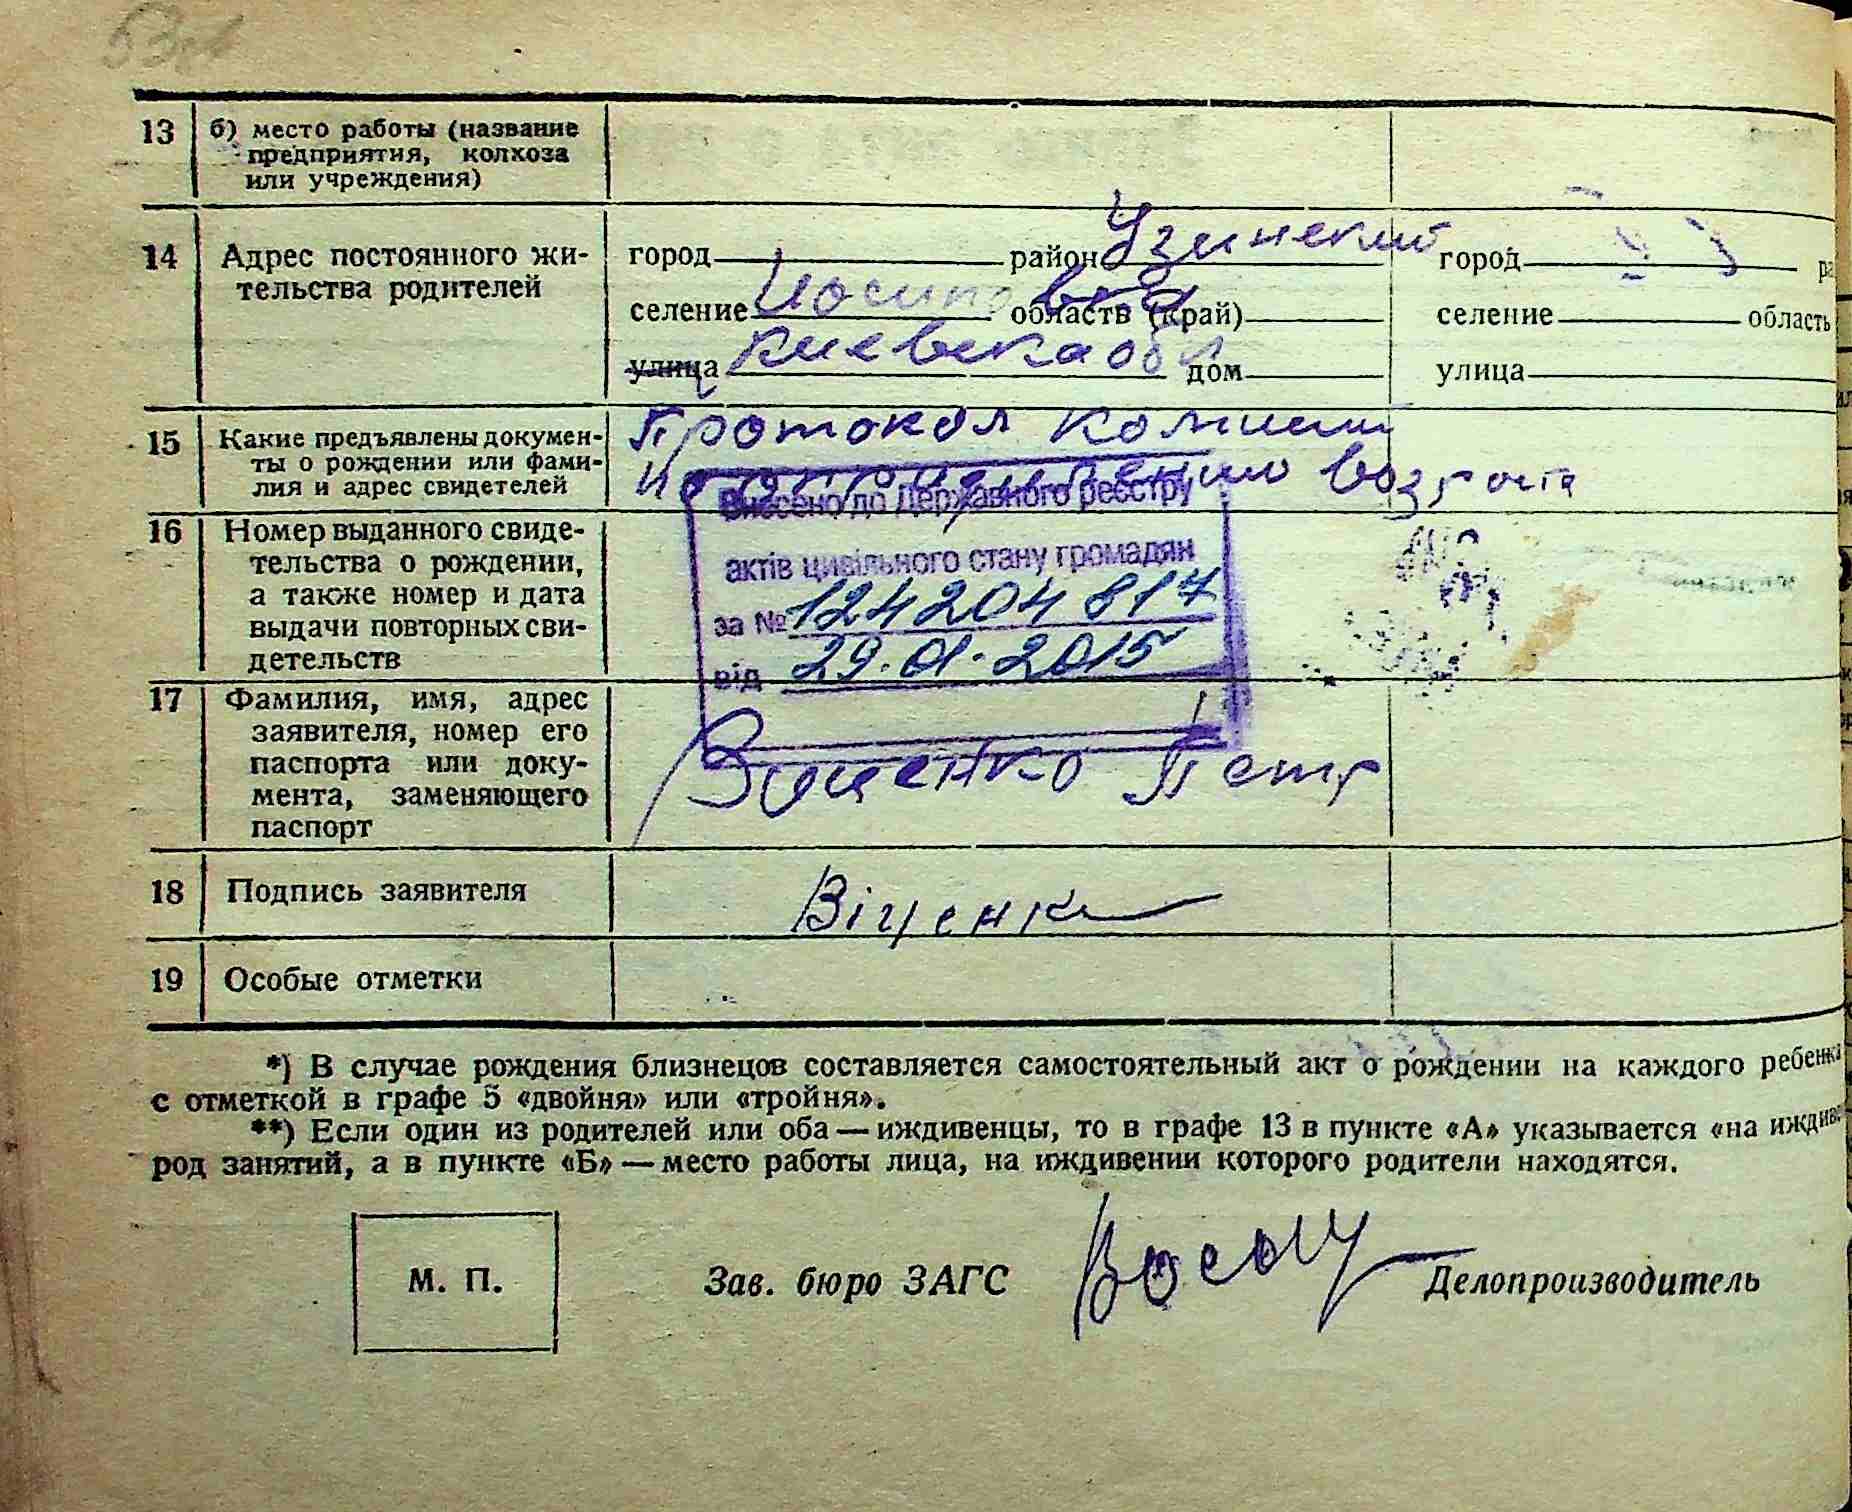 13 б) место работы (название
предприятия, колхоза
или учреждения)
14 Адрес постоянного жи-
тельства родителей
город район Узинский
селение Иосиповка область (край)
улица Киевска обл дом
город
селение область
улица
15 Какие предъявлены докумен-
ты о рождении или фами-
лия и адрес свидетелей
Протокол комисии
возроста
16 Номер выданного свиде-
тельства о рождении,
а также номер и дата
выдачи повторных сви-
детельств
Внесено до Державного реєстру
актів цивільного стану громадян
за № 124204817
від 29.01.2015
17 Фамилия, имя, адрес
заявителя, номер его
паспорта или доку-
мента, заменяющего
паспорт
Виценко Петр
18 Подпись заявителя
Віценк
19 Особые отметки
*) В случае рождения близнецов составляется самостоятельный акт о рождении на каждого ребенка
с отметкой в графе 5 «двойня» или «тройня».
**) Если один из родителей или оба — иждивенцы, то в графе 13 в пункте «А» указывается «на иждив
род занятий, а в пункте «Б» — место работы лица, на иждивении которого родители находятся.
М. П.
Зав. бюро ЗАГС
Делопроизводитель